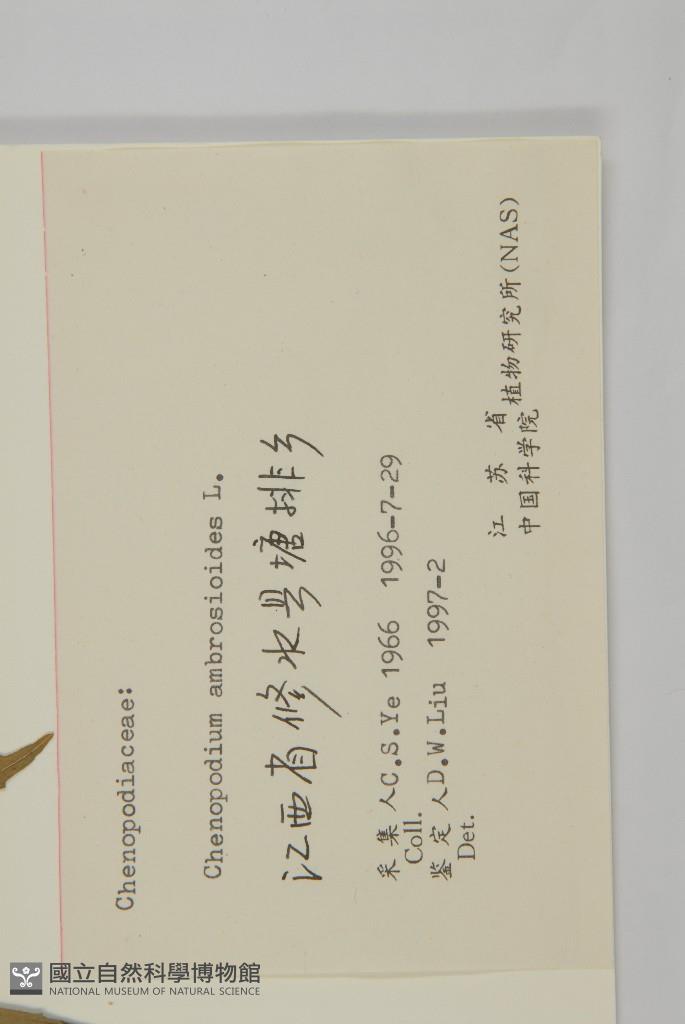 Chenopodiaceae:
Chenopodium ambrosioides L.
江西省修水县塘排乡
采集人 C.S.Ye 1966 1996-7-29
Coll.
鉴定人 D.W.Liu 1997-2
Det.
江苏省植物研究所(NAS)
中国科学院
國立自然科學博物館
NATIONAL MUSEUM OF NATURAL SCIENCE